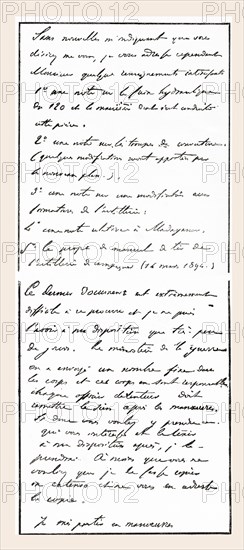 Sans nouvelles m'indiquant que vous
désirez me voir, je vous adresse cependant
Monsieur quelques renseignements intéressants
1° une note sur le frein hydraulique
du 120 et la manière dont s'est conduite
cette pièce.
2° une note sur les troupes de couverture.
(quelques modifications seront apportées par
le nouveau plan).
3° une note sur une modification aux
formations de l'artillerie:
4° une note relative à Madagascar.
5° le projet de manuel de tir de
l'artillerie de campagne (14 mars 1894.)
Ce dernier document est extrêmement
difficile à se procurer et je ne puis
l'avoir à ma disposition que très peu
de jours. Le ministère de la guerre
en a envoyé un nombre fixe dans
les corps et ces corps en sont responsables
chaque officier détenteur doit
remettre le sien après les manœuvres.
Si donc vous voulez y prendre ce
qui vous intéresse et le tenir
à ma disposition après, je le
prendrai. A moins que vous ne
vouliez que je le fasse copier
in extenso et ne vous en adresse
la copie.
Je vais partir en manœuvres
PHOTO12